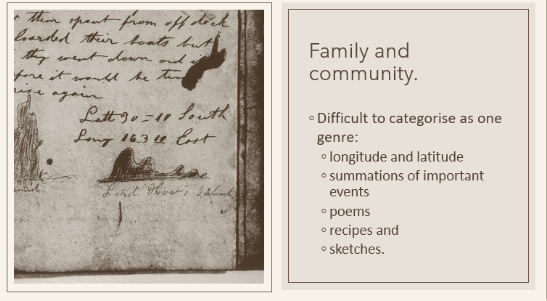 then spout from off deck
loarded their boats but
they went down out of
fore it would be
rise again
Latt 30 = 11 South
Long 163 East
Lord How's Island
Family and
community.
Difficult to categorise as one
genre:
longitude and latitude
summations of important
events
poems
recipes and
sketches.